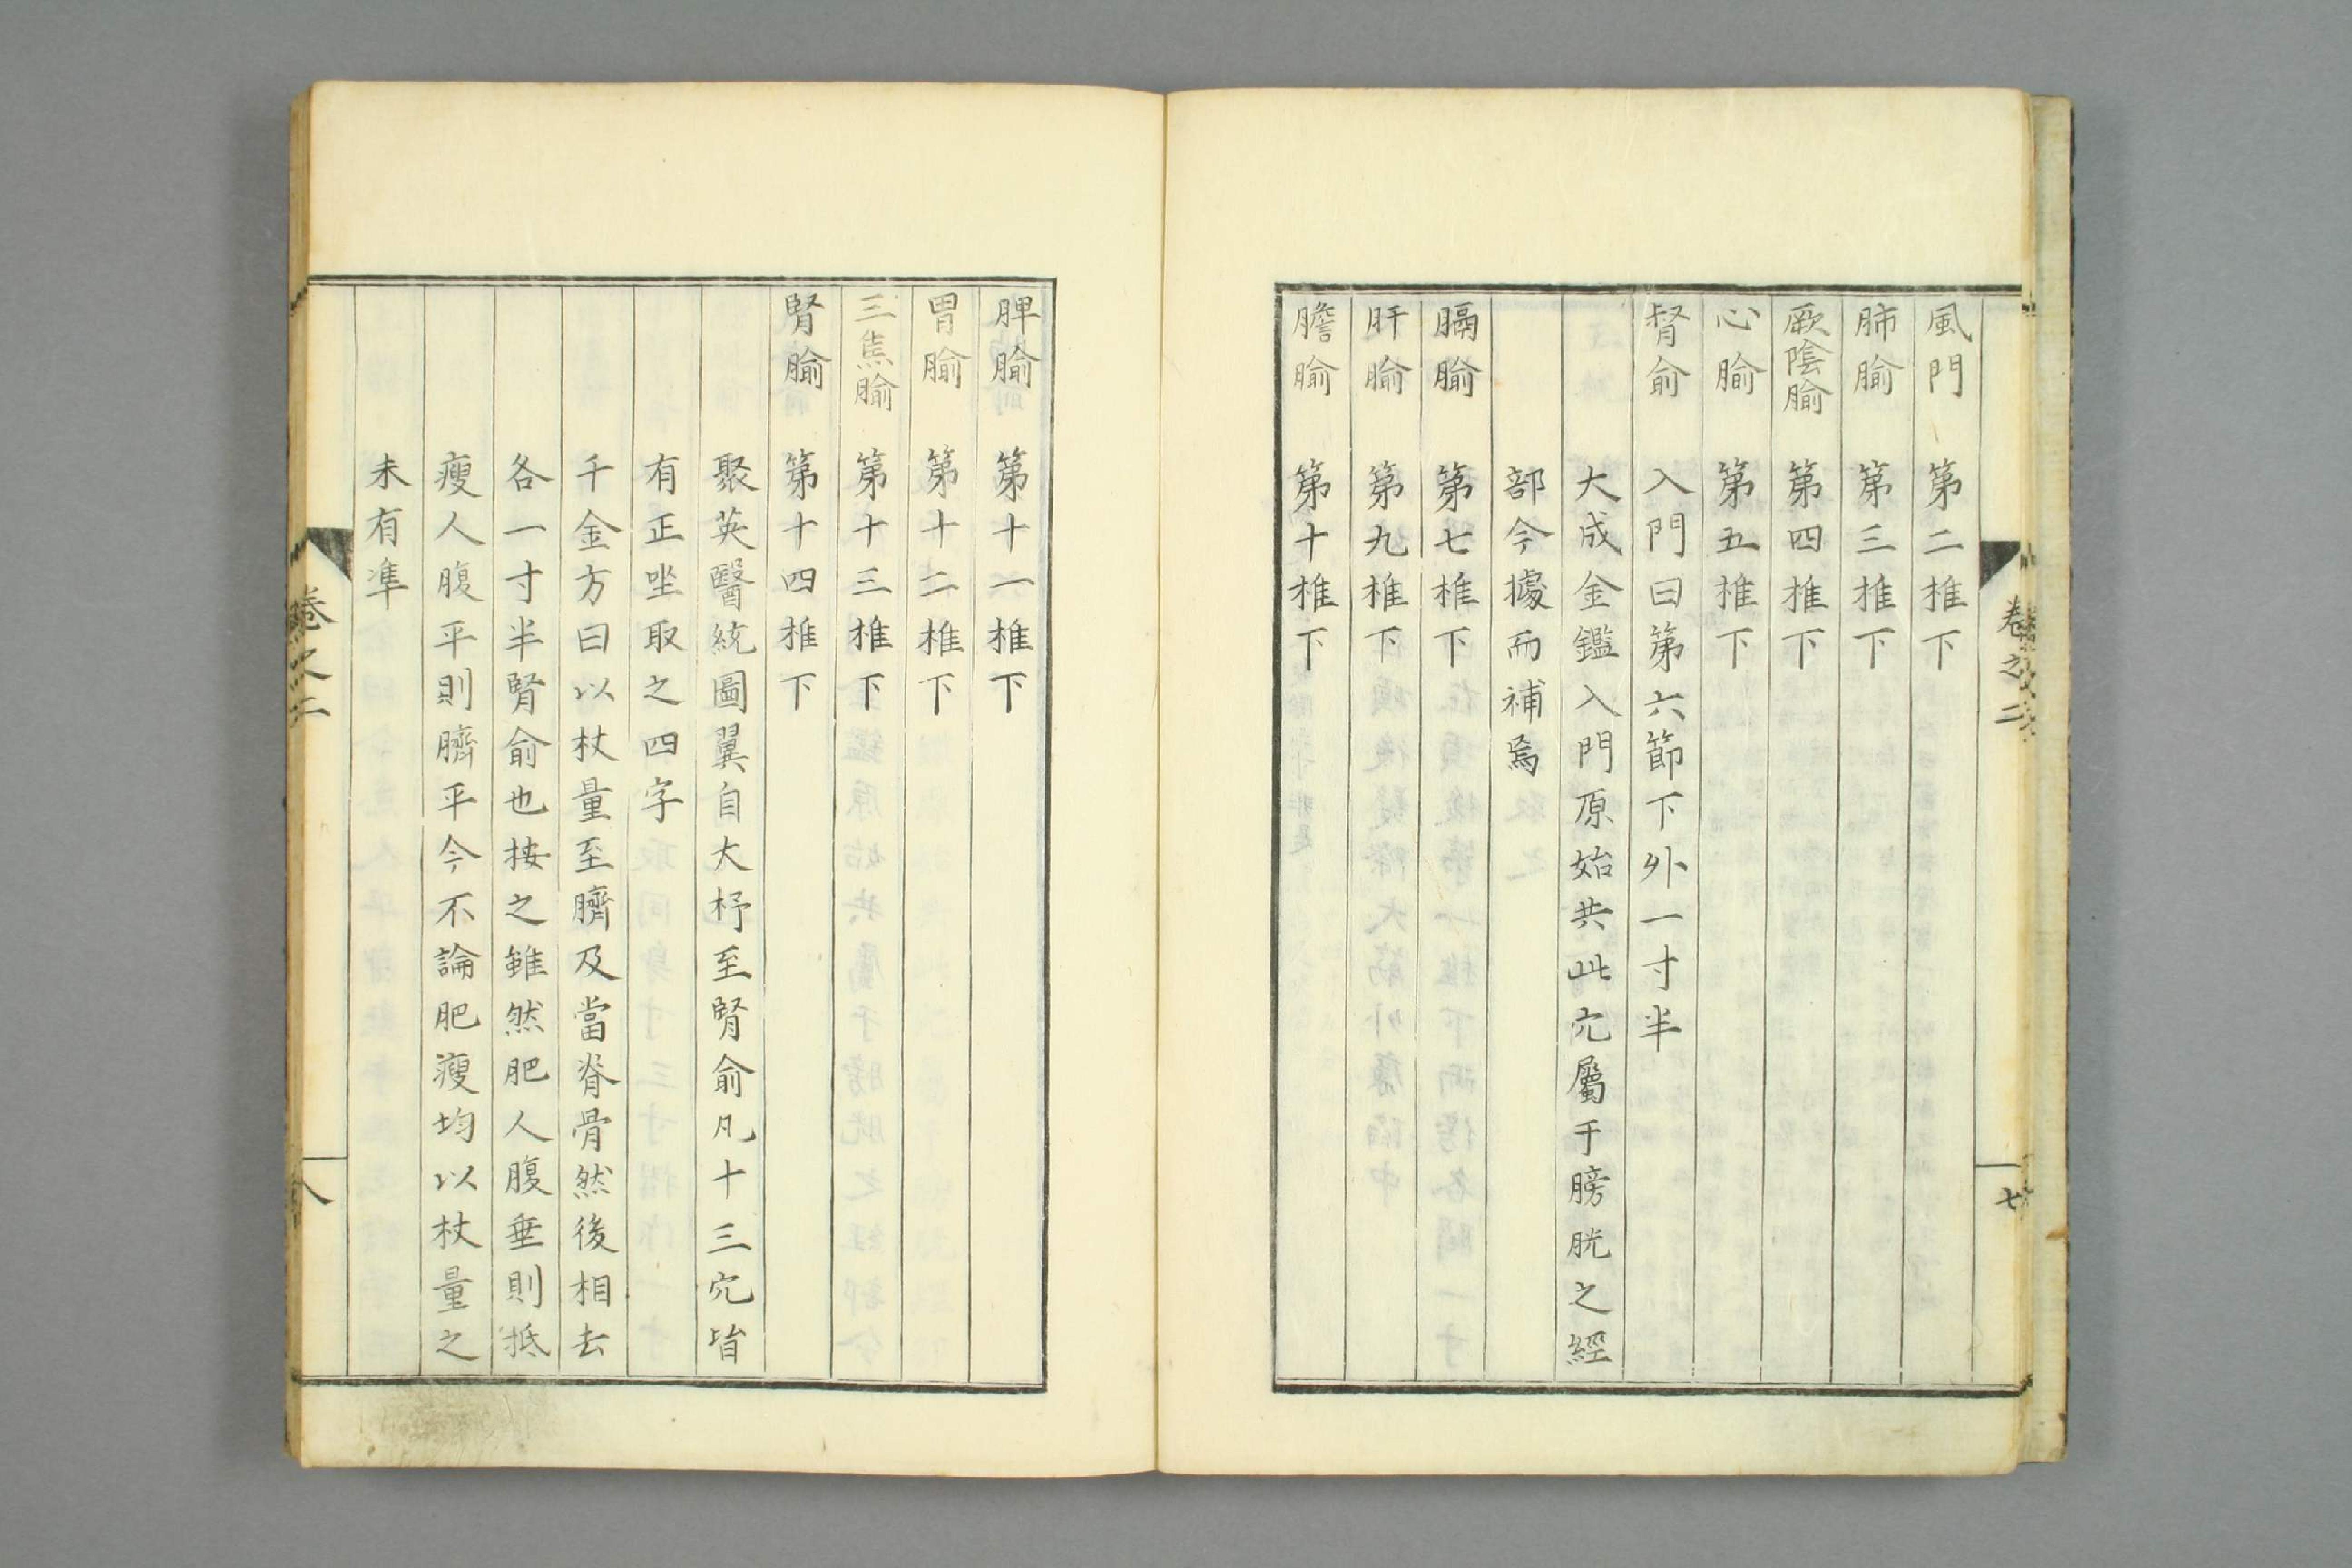 卷之二
七
風門 第二椎下
肺腧 第三椎下
厥陰腧 第四椎下
心腧 第五椎下
督俞 入門曰第六節下外一寸半
大成金鑑入門原始共此穴屬于膀胱之經
部今據而補焉
膈腧 第七椎下
肝腧 第九椎下
膽腧 第十椎下
脾腧 第十一椎下
胃腧 第十二椎下
三焦腧 第十三椎下
腎腧 第十四椎下
聚英醫統圖翼自大杼至腎俞凡十三穴皆
有正坐取之四字
千金方曰以杖量至臍及當脊骨然後相去
各一寸半腎俞也按之雖然肥人腹垂則抵
瘦人腹平則臍平今不論肥瘦均以杖量之
未有準
卷之二
八